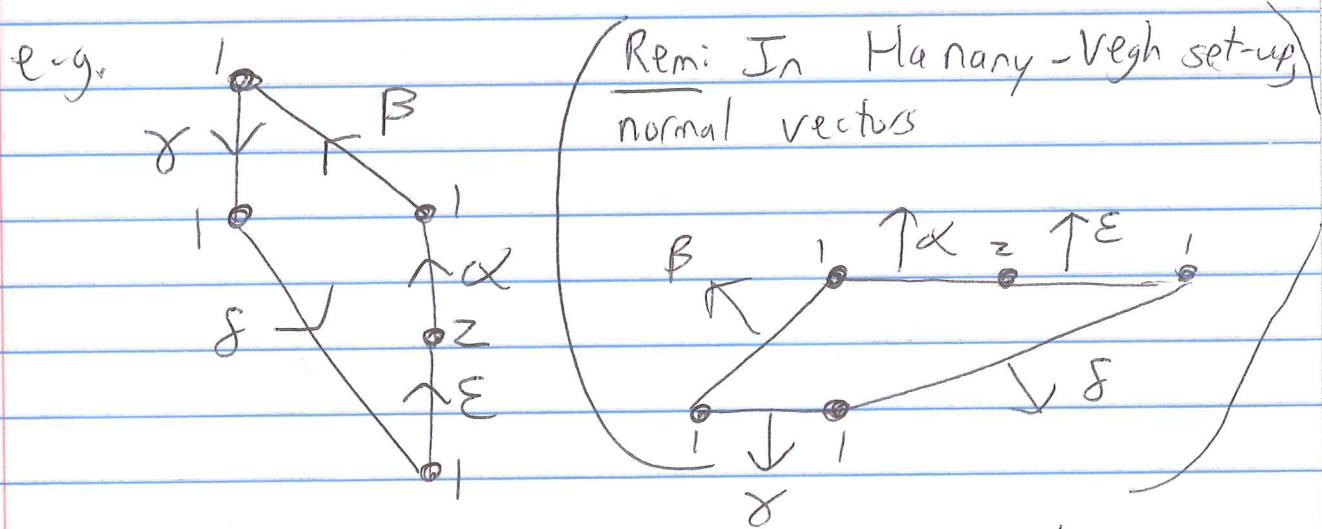 e.g.
1
β
γ
1
1
α
δ
2
ε
1
(Rem: In Hanany-Vegh set-up,
normal vectors
β
1
α
2
ε
1
δ
1
1
γ
)